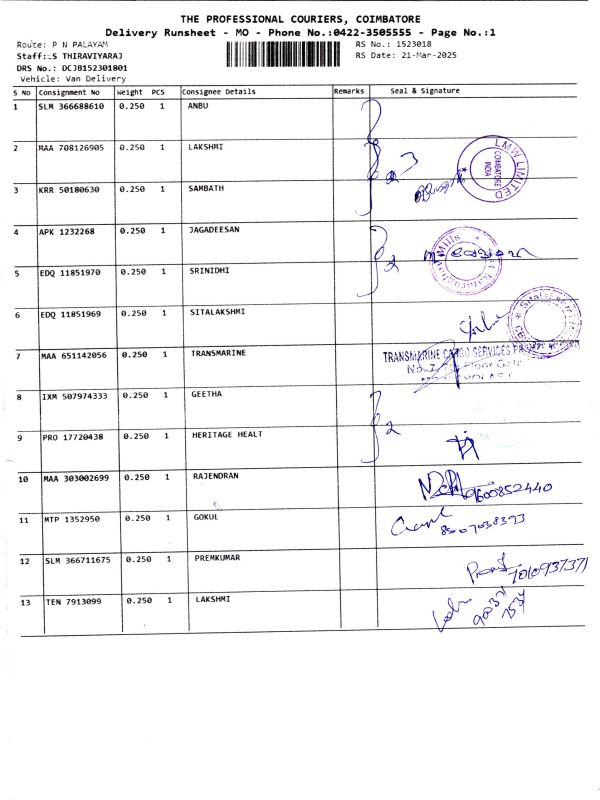 THE PROFESSIONAL COURIERS, COIMBATORE
Delivery Runsheet - MO - Phone No.:0422-3505555 - Page No.:1
Route: P N PALAYAM
RS No.: 1523018
Staff:S THIRAVIYARAJ
RS Date: 21-Mar-2025
DRS No.: DCJB152301801
Vehicle: Van Delivery
S No Consignment No Weight PCS Consignee Details Remarks Seal & Signature
1 SLM 366688610 0.250 1 ANBU
2 MAA 708126905 0.250 1 LAKSHMI
3 KRR 50180630 0.250 1 SAMBATH
3
LMW LIMITED
COIMBATORE
INDIA
4 APK 1232268 0.250 1 JAGADEESAN
5 EDQ 11851970 0.250 1 SRINIDHI
2
6 EDQ 11851969 0.250 1 SITALAKSHMI
7 MAA 651142056 0.250 1 TRANSMARINE
TRANSMARINE CARGO SERVICES
8 IXM 507974333 0.250 1 GEETHA
9 PRO 17720438 0.250 1 HERITAGE HEALT
2
10 MAA 303002699 0.250 1 RAJENDRAN
9600852440
11 MTP 1352950 0.250 1 GOKUL
12 SLM 366711675 0.250 1 PREMKUMAR
7010937371
13 TEN 7913099 0.250 1 LAKSHMI